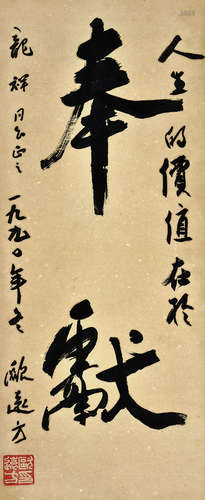 人生的價值在於
奉獻
龍祥同志正之
一九九〇年冬 歐遠方